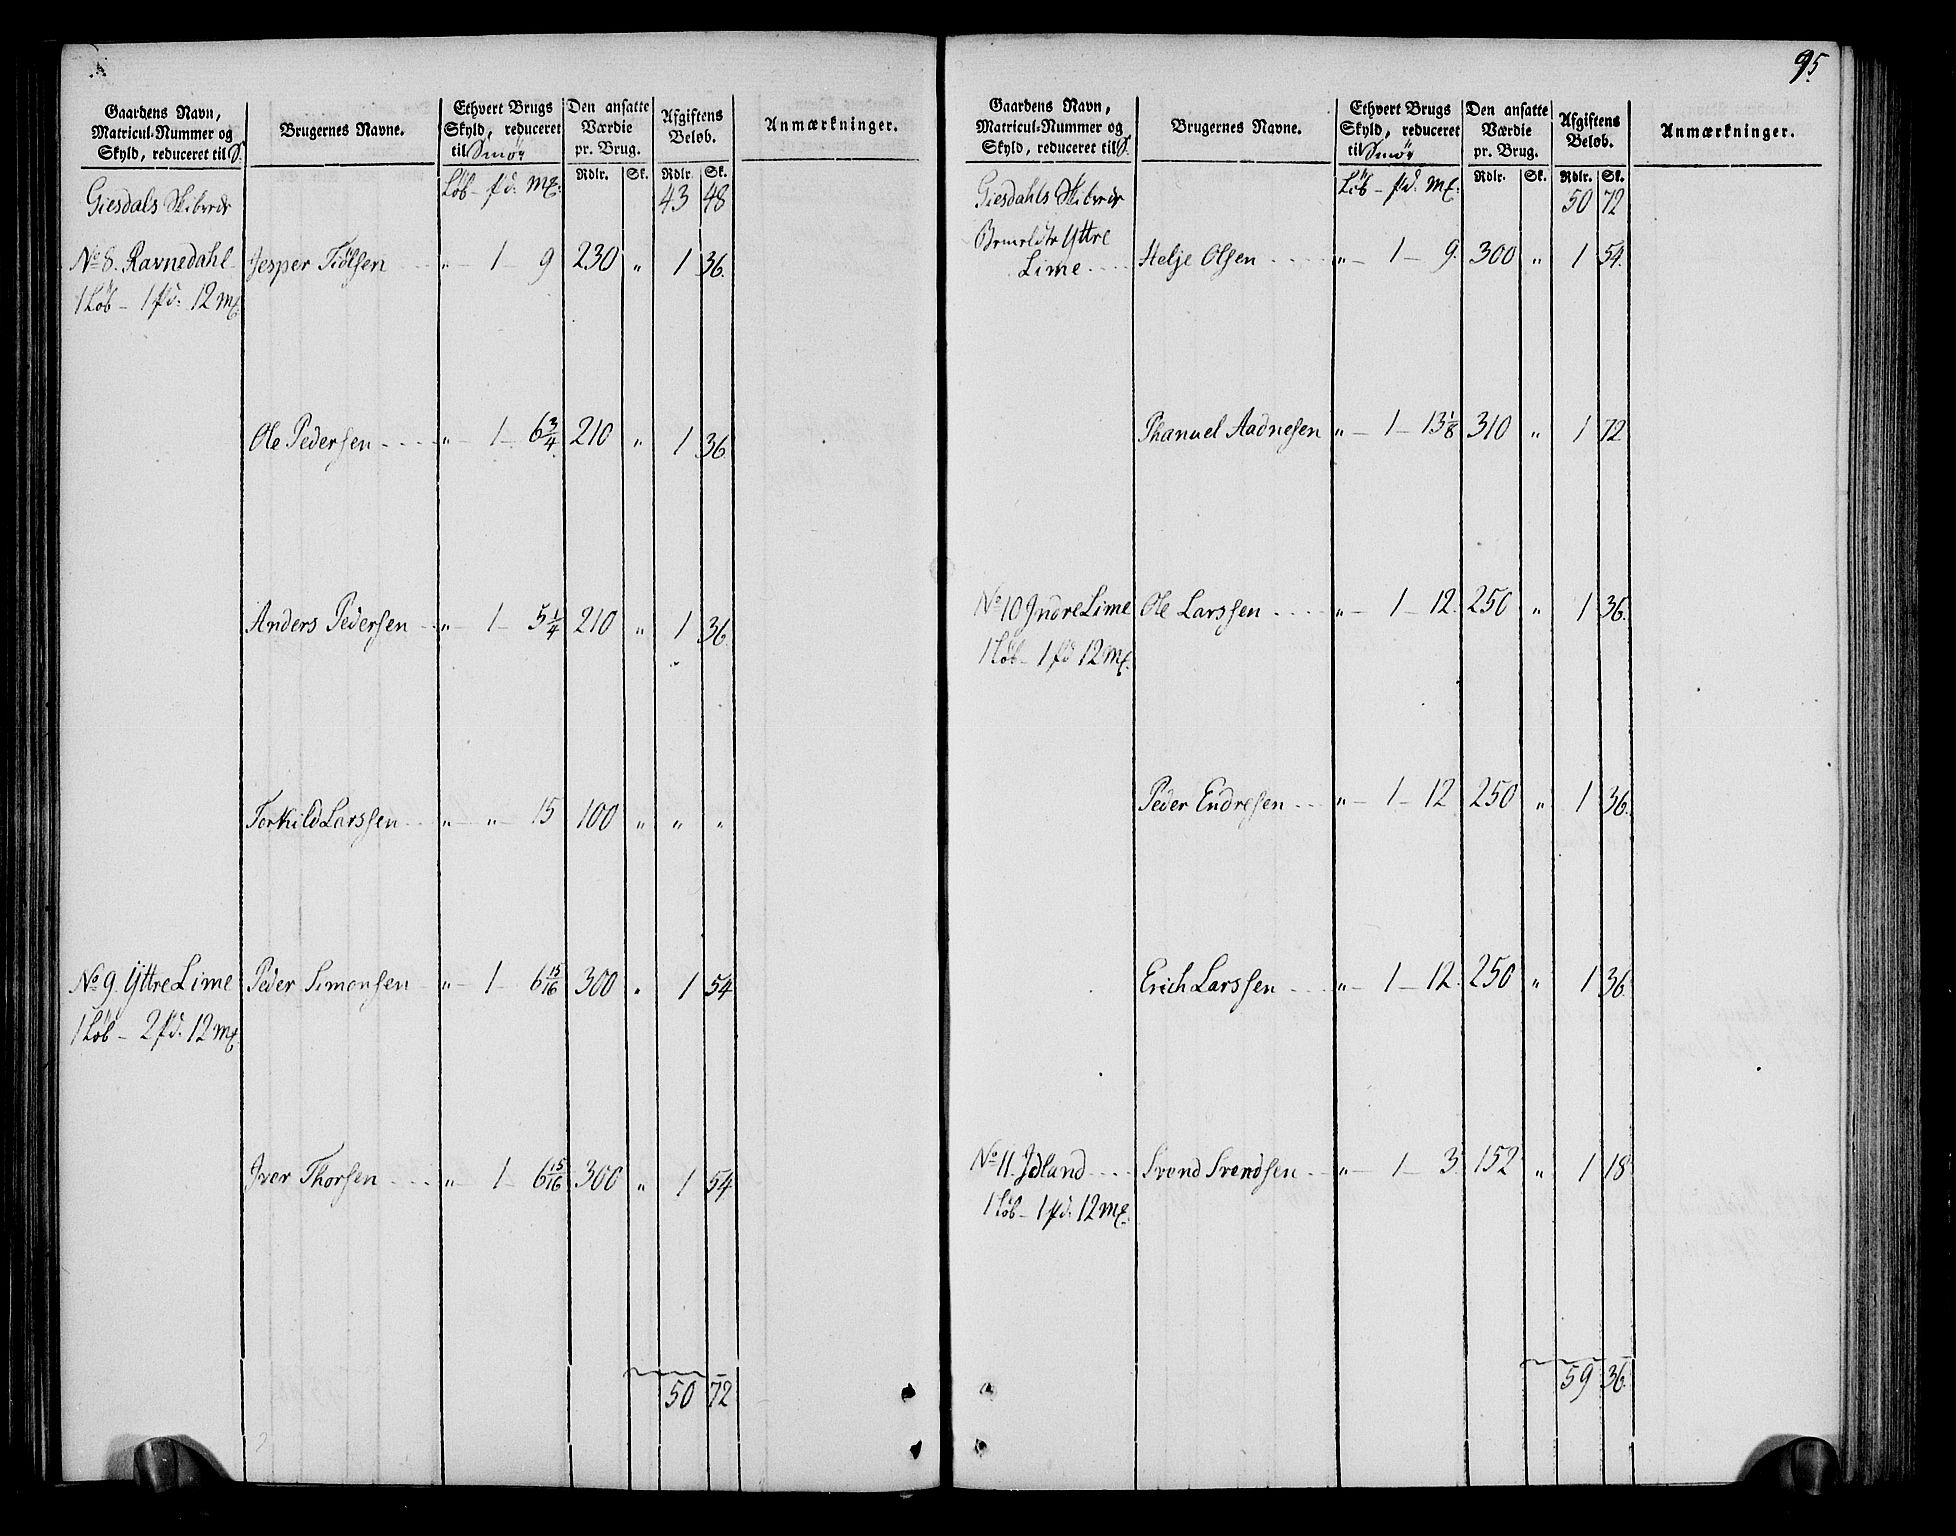 Gaardens Navn, Matricul-Nummer og Skyld, reduceret til S. | Brugernes Navne. | Ethvert Brugs Skyld, reduceret til Smör | Den ansatte Værdie pr. Brug. | Afgiftens Beløb. | Anmærkninger.
Løb - pd. Mk. | Rdlr. | Sk. | Rdlr. | Sk.
Giesdals Skibrede | 43 | 48
No 8. Ravnedahl | Jesper Tiölsen | " - 1 - 9 | 230 | " | 1 | 36.
1 Løb - 1 pd. 12 Mk
Ole Pedersen | " - 1 - 6 3/4 | 210 | " | 1 | 36.
Anders Pedersen | " - 1 - 5 1/4 | 210 | " | 1 | 36
Torkild Larssen | " - " - 15 | 100 | " | " | "
No 9. Yttre Lime | Peder Simonsen | " - 1 - 6 15/16 | 300 | " | 1 | 54
1 Løb - 2 pd. 12 Mk
Iver Thorsen | " - 1 - 6 15/16 | 300 | " | 1 | 54
50 | 72
95.
Gaardens Navn, Matricul-Nummer og Skyld, reduceret til S. | Brugernes Navne. | Ethvert Brugs Skyld, reduceret til Smör | Den ansatte Værdie pr. Brug. | Afgiftens Beløb. | Anmærkninger.
Løb - pd. Mk. | Rdlr. | Sk. | Rdlr. | Sk.
Giesdahls Skibrede | 50 | 72
Yttre
Lime | Helje Olsen | " - 1 - 9. | 300 | " | 1 | 54.
Phanuel Aadnesen | " - 1 - 13 1/8 | 310 | " | 1 | 72
No 10 Indre Lime | Ole Larssen | " - 1 - 12. | 250 | " | 1 | 36.
1 Løb - 1 pd 12 Mk.
Peder Endresen | " - 1 - 12 | 250 | " | 1 | 36.
Erich Larssen | " - 1 - 12. | 250 | " | 1 | 36.
No 11. Idland | Svend Svendsen | " - 1 - 3 | 152 | " | 1 | 18
1 Løb - 1 pd. 12 Mk.
59 | 36.